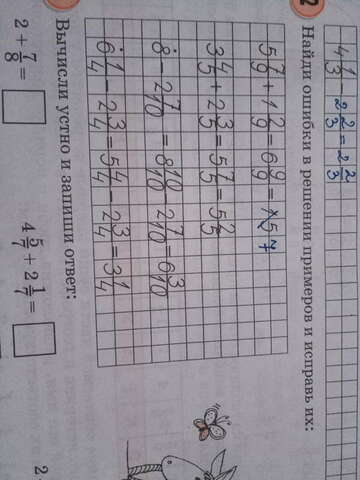 4 1/3 - 2 2/3 = 2 2/3
2 Найди ошибки в решении примеров и исправь их:
5 7/9 + 1 2/9 = 6 9/9 = 7
3 4/5 + 2 3/5 = 5 7/5 = 5 2/5
8 - 2 7/10 = 8 10/10 - 2 7/10 = 6 3/10
6 1/4 - 2 3/4 = 5 4/4 - 2 3/4 = 3 1/4
Вычисли устно и запиши ответ:
2 + 7/8 =
4 5/7 + 2 1/7 =
2